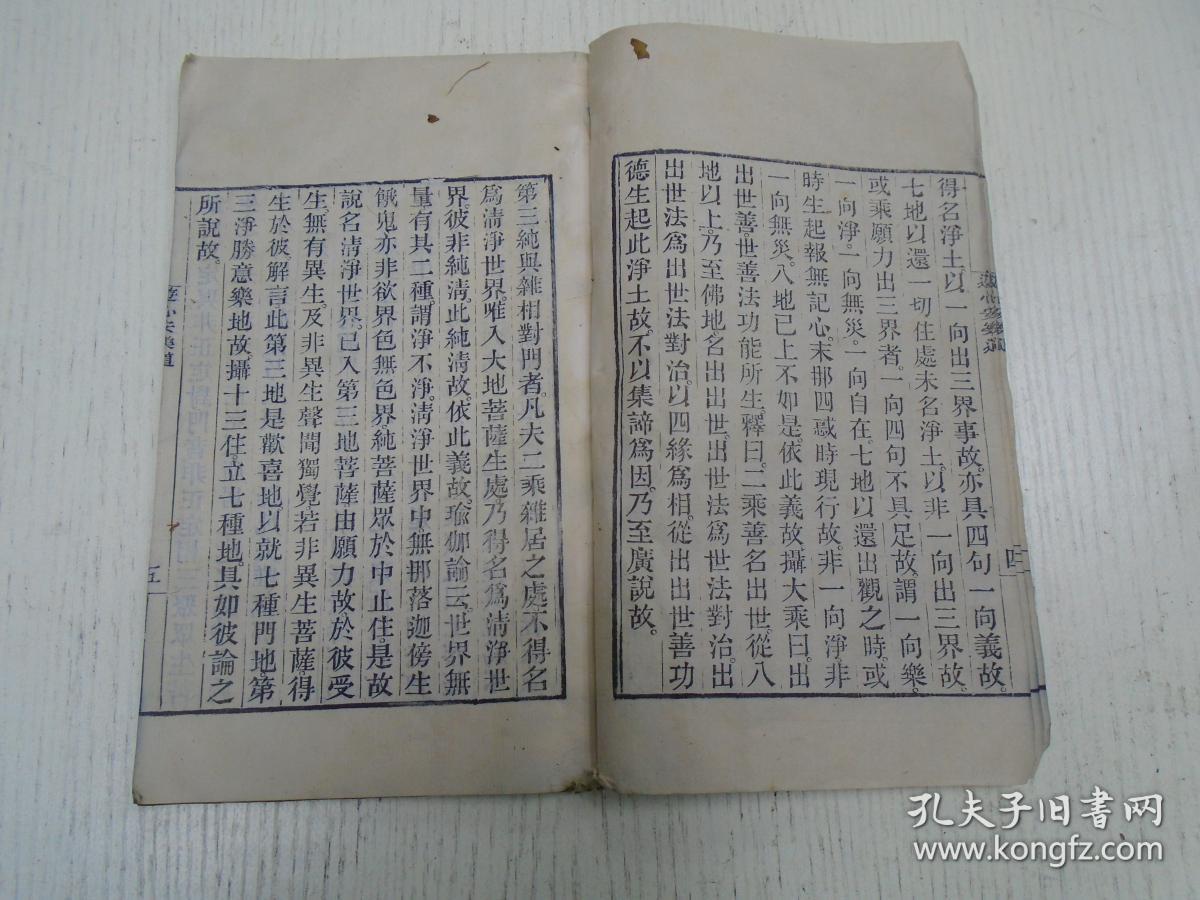 得名淨土以一向出三界事故。亦具四句一向義故。
七地以還一切住處未名淨土。以非一向出三界故。
或乘願力出三界者。一向四句不具足故。謂一向樂。
一向淨。一向無災。一向自在。七地以還出觀之時。或
時生起報無記心。末那四惑時現行故。非一向淨非
一向無災。八地已上不如是。依此義故攝大乘曰。出
出世善。世善法功能所生。釋曰。二乘善名出世。從八
地以上。乃至佛地。名出出世。出世法爲世法對治。出
出世法爲出世法對治。以四緣爲相。從出出世善功
德生起此淨土故。不以集諦爲因。乃至廣說故。
遊心安樂道
四
第三純與雜相對門者。凡夫二乘雜居之處不得名
爲清淨世界。唯入大地菩薩生處。乃得名爲清淨世
界。彼非純清。此純清故。依此義故。瑜伽論云。世界無
量有其二種。謂淨不淨。清淨世界中。無那落迦傍生
餓鬼亦非欲界色無色界。純菩薩眾於中止住。是故
說名清淨世界。已入第三地菩薩由願力故。於彼受
生。無有異生。及非異生聲聞獨覺。若非異生菩薩。得
生於彼。解言此第三地是歡喜地。以就七種門地。第
三淨勝意樂地故。攝十三住。立七種地。具如彼論之
所說故。
遊心安樂道
五
孔夫子旧书网
www.kongfz.com